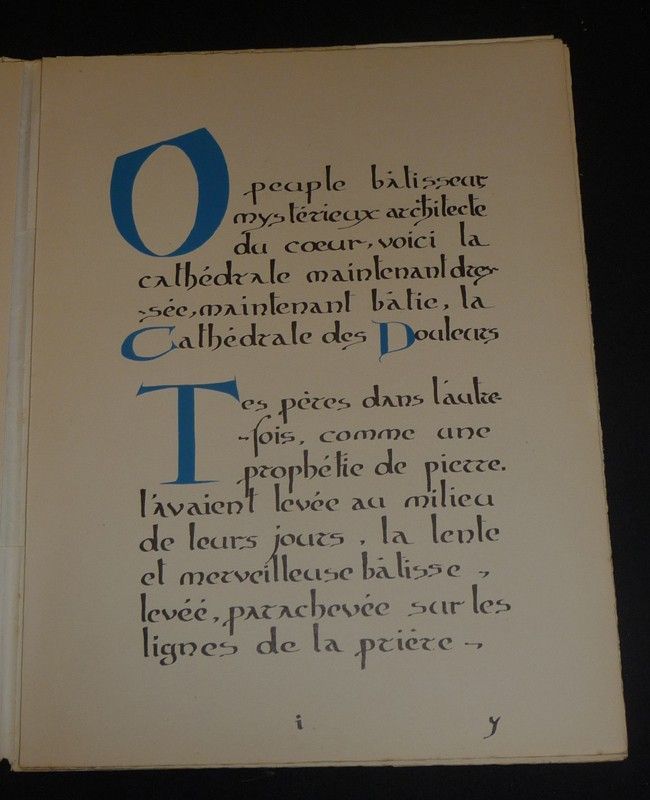 O peuple bâtisseur
mystérieux architecte
du cœur, voici la
cathédrale maintenant dres-
-sée, maintenant bâtie, la
Cathédrale des Douleurs
Tes pères dans l'autre-
-fois, comme une
prophétie de pierre.
l'avaient levée au milieu
de leurs jours, la lente
et merveilleuse bâtisse,
levéé, parachevée sur les
lignes de la prière,
i y